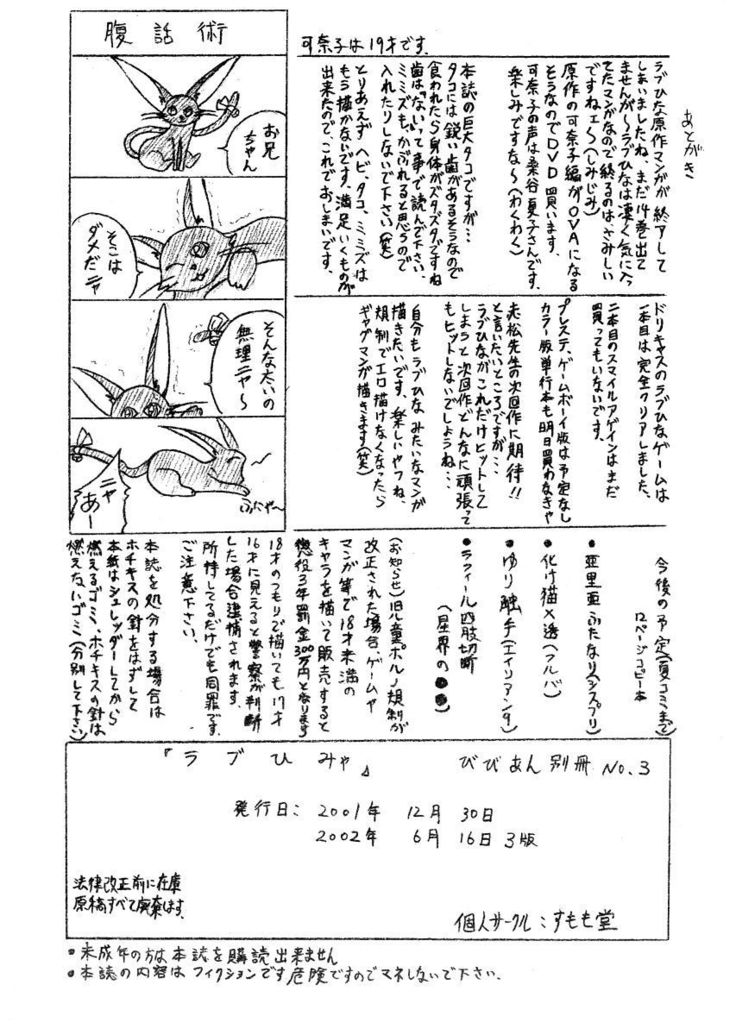 腹話術
お兄
ちゃん
そこは
ダメだニャ
そんな太いの
無理ニャ〜
ニャ
あー
ふにゃ〜
あとがき
ラブひな原作マンガが終アして
しまいましたね、まだ14巻出て
ませんが〜ラブひなは凄く気に入っ
てたマンガなので終るのはさみしい
ですねェ〜(しみじみ)
原作の可奈子編がOVAになる
そうなのでDVD買います。
可奈子の声は桑谷夏子さんです。
楽しみですな〜(わくわく)
本誌の巨大タコですが…
タコには鋭い歯があるそうなので
食われたら身体がズタズタですね
歯は“ない”って事で読んで下さい、
ミミズも、かぶれると思うので
入れたりしないで下さい(笑)
とりあえずヘビ、タコ、ミミズは
もう描かないです、満足いくものが
出来たので、これでおしまいです、
可奈子は19才です、
ドリキャスのラブひなゲームは
一本目は完全クリアしました、
二本目のスマイルアゲインはまだ
買ってもいないです。
プレステ、ゲームボーイ版は予定なし
カラー版単行本も明日買わなきゃ
赤松先生の次回作に期待!!
と言いたいところですが…
ラブひながこれだけヒットして
しまうと次回作どんなに頑張って
もヒットしないでしょうね…
自分もラブひなみたいなマンガ
描きたいです、楽しいやつね、
規制でエロ描けなくなったら
ギャグマンガ描きます(笑)
今後の予定(夏コミまで)
12ページコピー本
●亜里亜ふたなり(シスプリ)
●化け猫×透(フルバ)
●ゆり触手(エイリアン9)
●ラフィール四肢切断
(星界の●●)
(お知らせ)旧児童ポルノ規制が
改正された場合、ゲームや
マンガ等で18才未満の
キャラを描いて販売すると
懲役3年罰金300万円となります
18才のつもりで描いても17才
16才に見えると警察が判断
した場合逮捕されます。
所持してるだけでも同罪です、
ご注意下さい、
本誌を処分する場合は
ホチキスの針をはずして
本紙はシュレッダーしてから
燃えるゴミ、ホチキスの針は
燃えないゴミ(分別して下さい)
『ラブひみゃ』 びびあん別冊 No.3
発行日: 2001年 12月 30日
2002年 6月 16日 3版
法律改正前に在庫
原稿すべて廃棄します、
個人サークル:すもも堂
●未成年の方は本誌を購読出来ません
●本誌の内容はフィクションです危険ですのでマネしないで下さい.